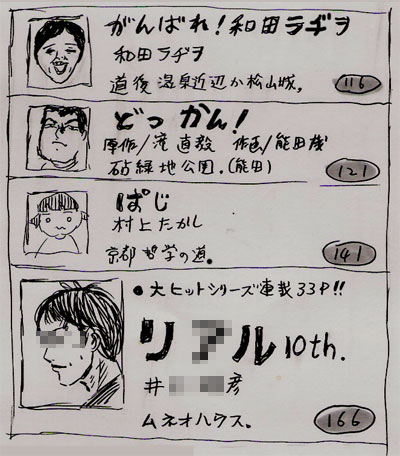 がんばれ!和田ラヂヲ
和田ラヂヲ
道後温泉近辺か松山城。
116
どっかん!
原作/滝直毅 作画/能田茂
砧緑地公園。(能田)
121
ぱじ
村上たかし
京都哲学の道。
141
●大ヒットシリーズ連載33P!!
リ ル10th.
井 彦
ムネオハウス。
166